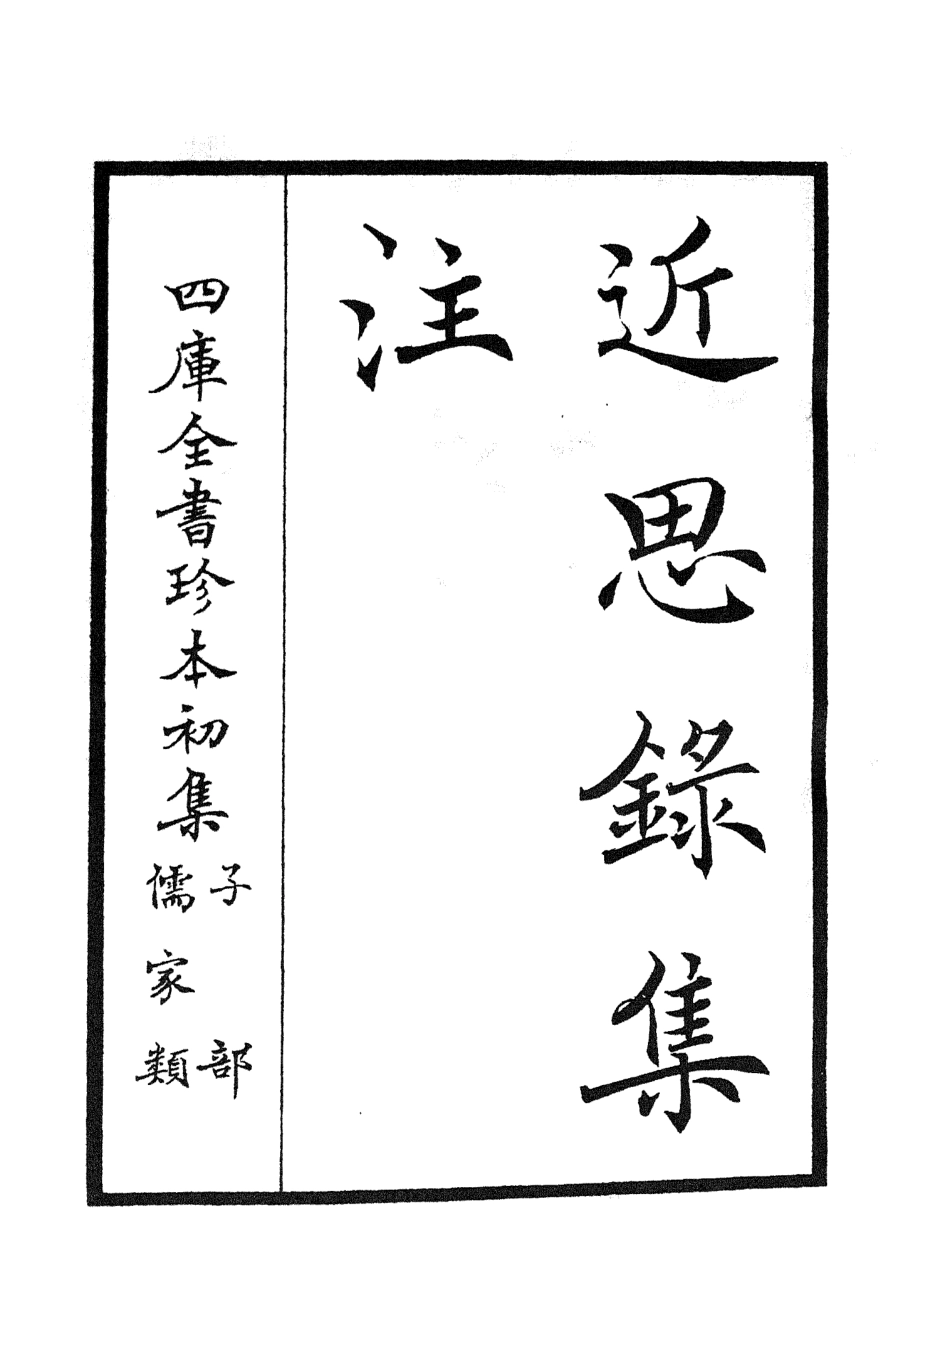 近思錄集
注
四庫全書珍本初集
子部
儒家類